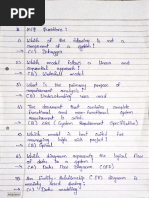 * MCQ Questions :
1) Which of the following is not a
component of a system ?
→ (C) Debugger
2) Which model follows a linear and
sequential approach ?
→ (B) Waterfall model
3) What is the primary purpose of
requirement analysis ?
→ (C) Understanding user need
4) The document that contains complete
functional and non-functional requirements
is called :
→ (C) SRS (System Requirement Specification)
5) Which model is best suited for
managing high risk project ?
→ (C) Spiral
6) Which diagram represents the logical flow
of data in a system ?
7) An Entity Relationship (ER) Diagram is
mainly used during ?